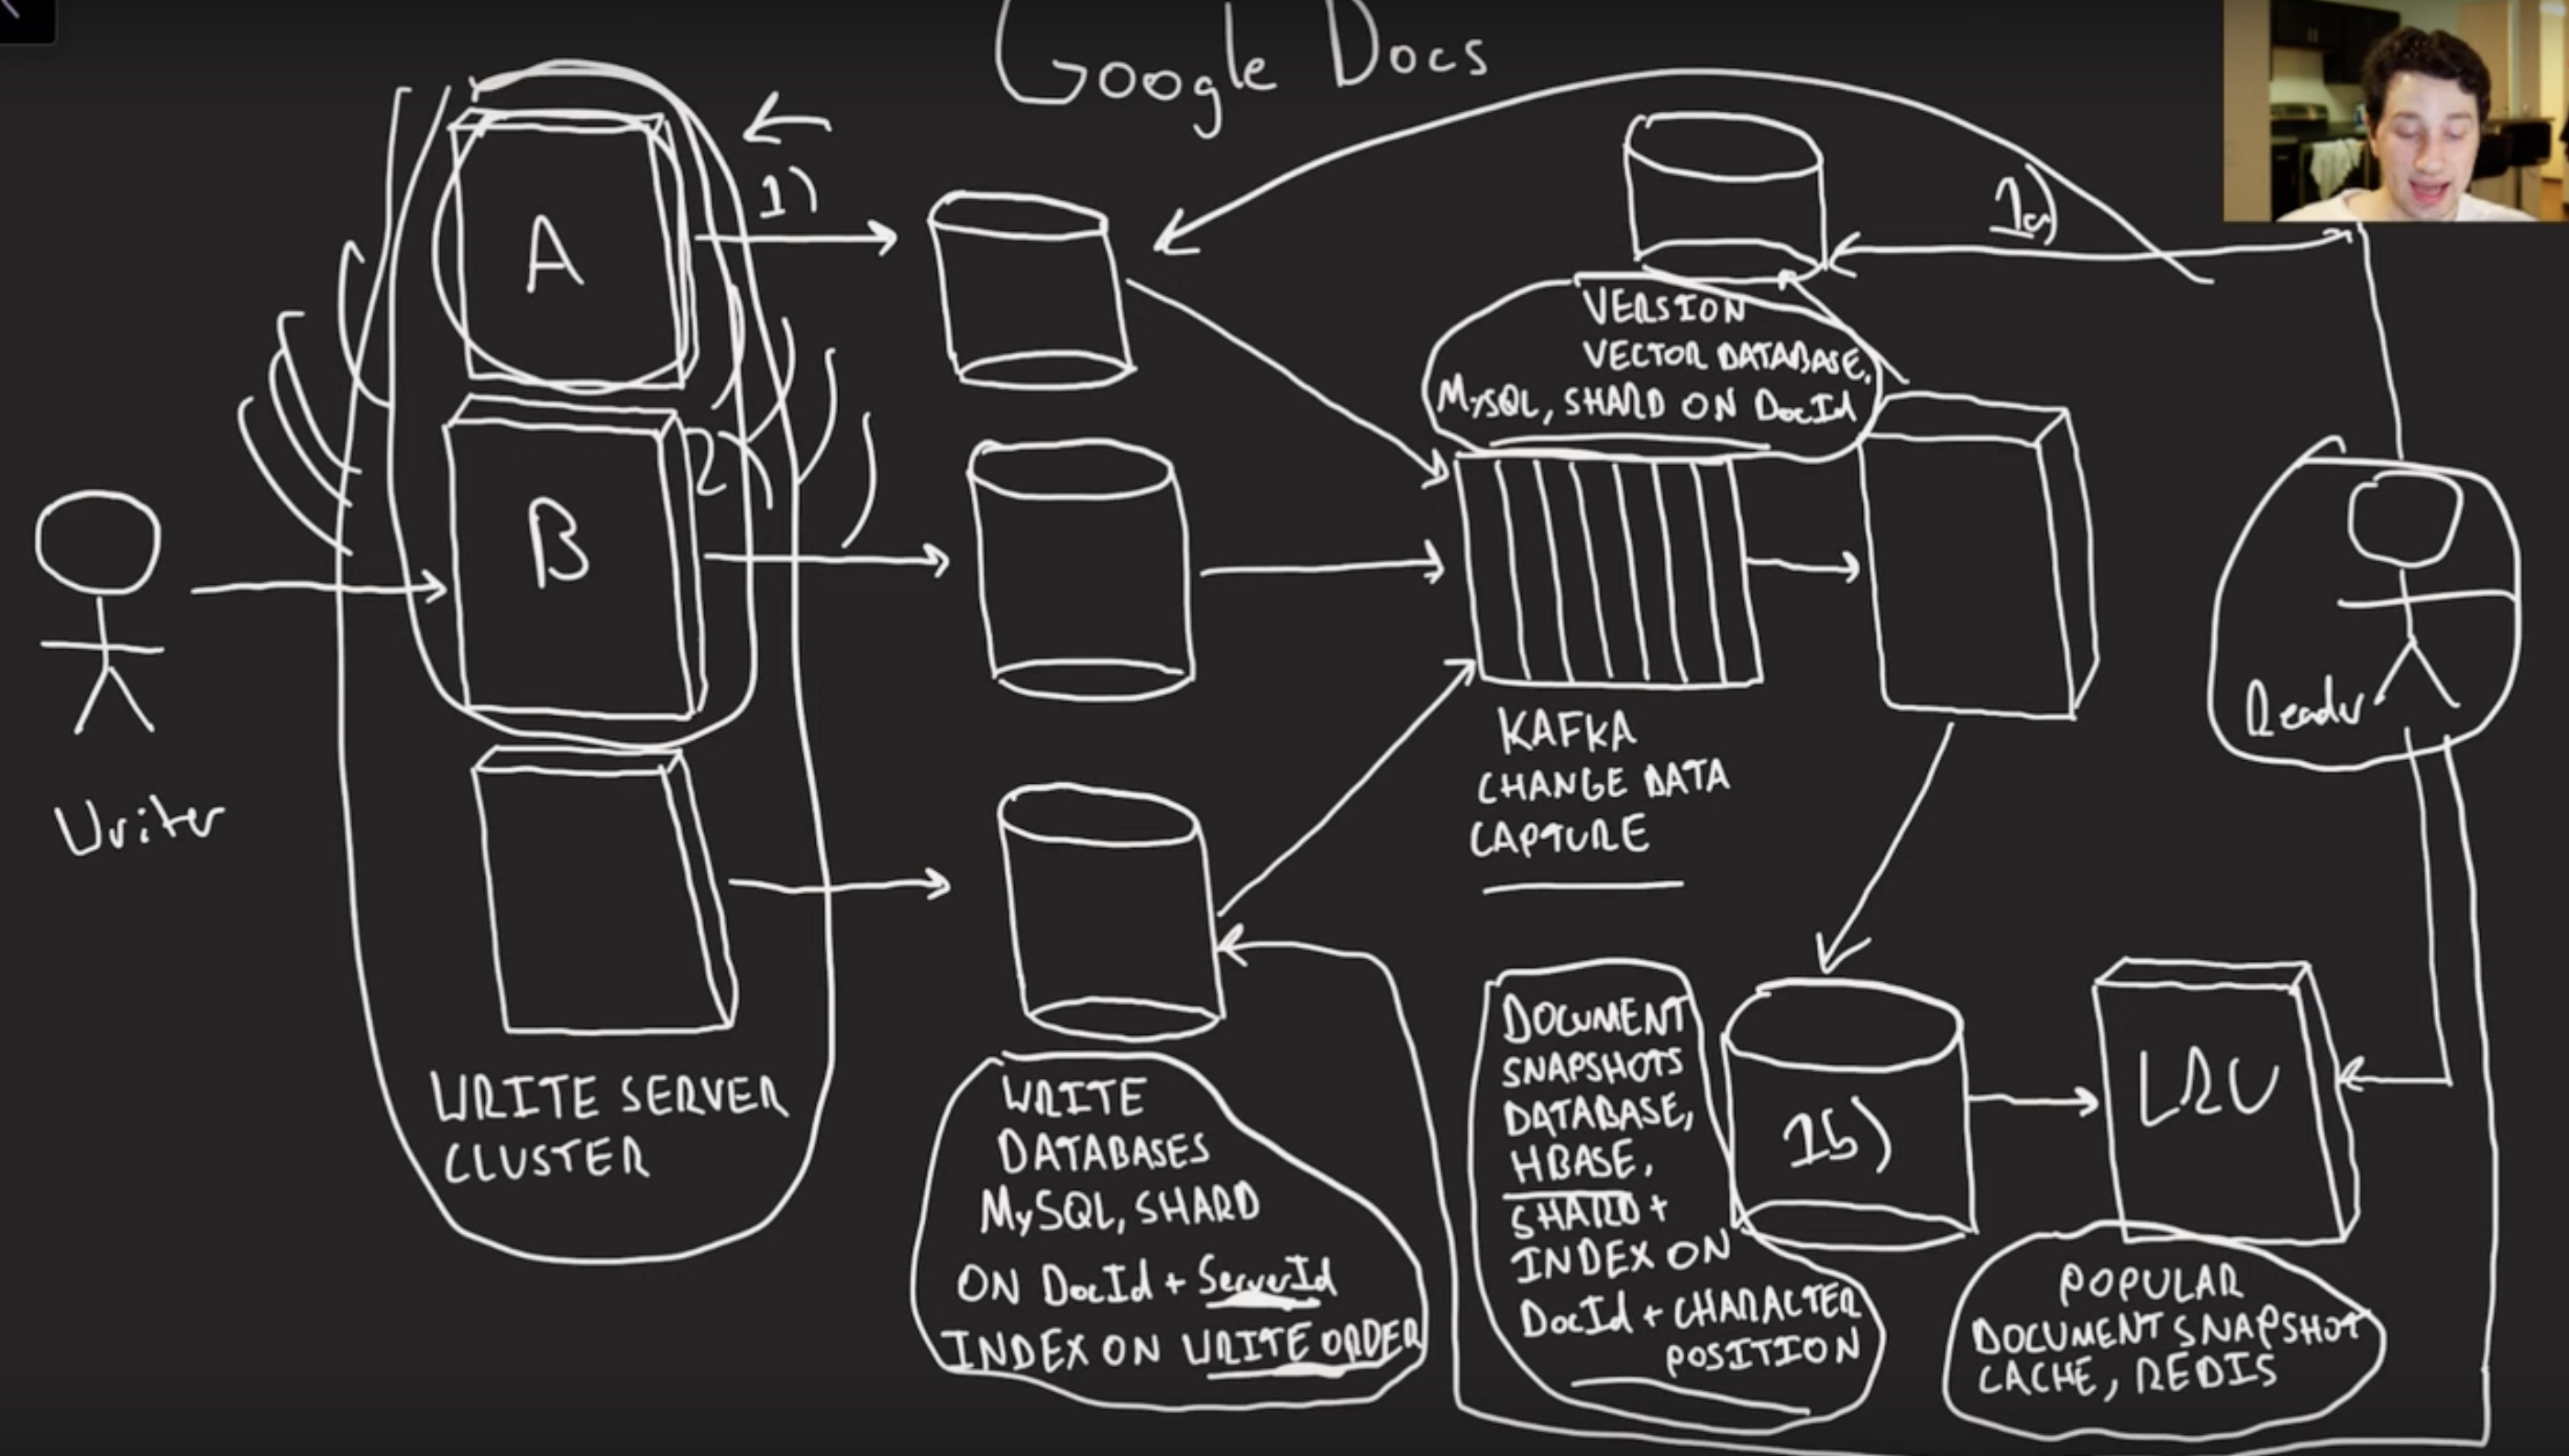 Google Docs
A
1)
1a)
VERSION
VECTOR DATABASE,
MySQL, SHARD ON DocId
B
2)
Writer
Reader
KAFKA
CHANGE DATA
CAPTURE
WRITE SERVER
CLUSTER
WRITE
DATABASES
MySQL, SHARD
ON DocId + ServerId
INDEX ON WRITE ORDER
DOCUMENT
SNAPSHOTS
DATABASE,
HBASE,
SHARD +
INDEX ON
DocId + CHARACTER
POSITION
1b)
LRU
POPULAR
DOCUMENT SNAPSHOT
CACHE, REDIS